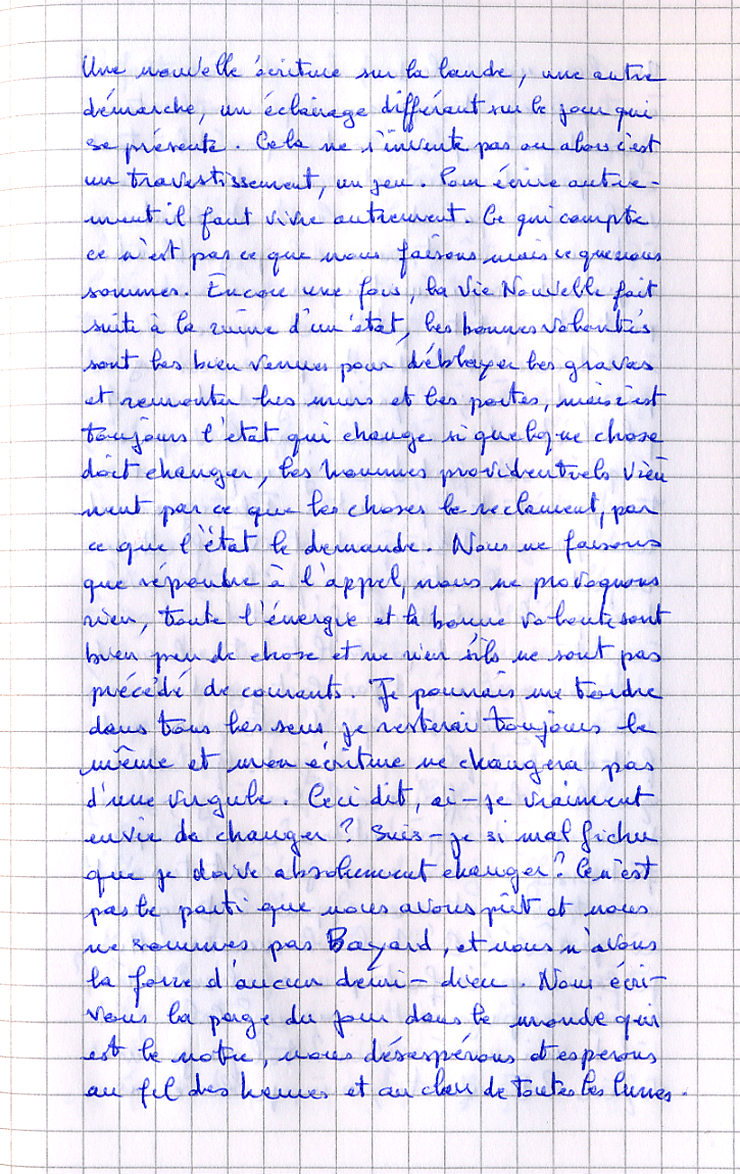 Une nouvelle écriture sur la lande, une autre
démarche, un éclairage différant sur le jour qui
se présente. Cela ne s'invente pas ou alors c'est
un travestissement, un jeu. Pour écrire autre-
ment il faut vivre autrement. Ce qui compte
ce n'est pas ce que nous faisons mais ce que nous
sommes. Encore une fois, la Vie Nouvelle fait
suite à la ruine d'un état, les bonnes volontés
sont les bien venues pour déblayer les gravas
et remonter les murs et les portes, mais c'est
toujours l'état qui change si quelque chose
doit changer, les hommes providentiels vien
nent par ce que les choses le reclament, par
ce que l'état le demande. Nous ne faisons
que répondre à l'appel, nous ne provoquons
rien, toute l'énergie et la bonne volonté sont
bien peu de chose et ne rien s'ils ne sont pas
précédé de courants. Je pourrais me tordre
dans tous les sens je resterai toujours le
même et mon écriture ne changera pas
d'une virgule. Ceci dit, ai-je vraiment
envie de changer ? Suis-je si mal fichu
que je doive absolument changer ? Ce n'est
pas le parti que nous avons prit et nous
ne sommes pas Bayard, et nous n'avons
la force d'aucun demi-dieu. Nous écri-
vons la page du jour dans le monde qui
est le notre, nous désespérons et esperons
au fil des heures et au clair de toutes les lunes.